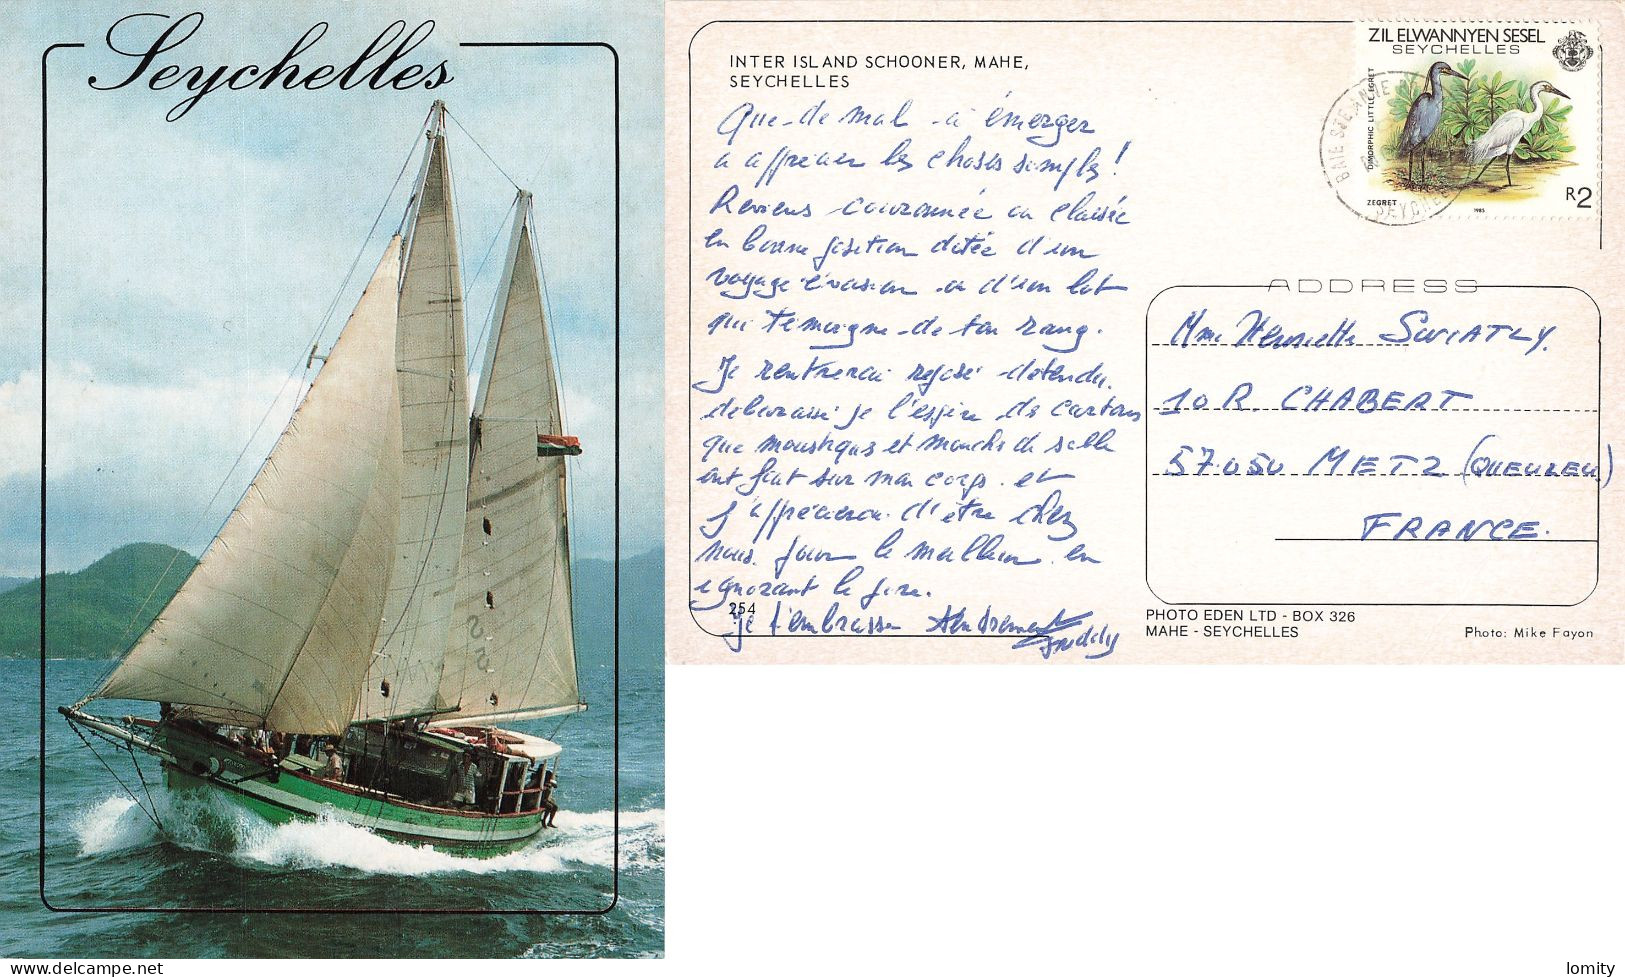 Seychelles
INTER ISLAND SCHOONER, MAHE,
SEYCHELLES
Que de mal à émerger
a apprécier les choses simples!
Reviens couronnée ou classée
en bonne position dotée d'un
voyage évasion ou d'un lot
qui témoigne de ton rang.
Je rentrerai reposé détendu,
débarrassé je l'espère de cartons
que moustiques et mouches de sable
ont fait sur mon corps et
j'apprécierai d'être chez
nous pour le meilleur en
ignorant le pire.
254
je t'embrasse tendrement
Freddy
ZIL ELWANNYEN SESEL
SEYCHELLES
DIMORPHIC LITTLE EGRET
ZEGRET
1985
R2
BAIE STE ANNE
SEYCHELLES
ADDRESS
Mme Henriette SWIATLY.
10 R. CHABERT
57050 METZ (QUEULEU)
FRANCE.
PHOTO EDEN LTD - BOX 326
MAHE - SEYCHELLES
Photo: Mike Fayon
lomity
delcampe.net